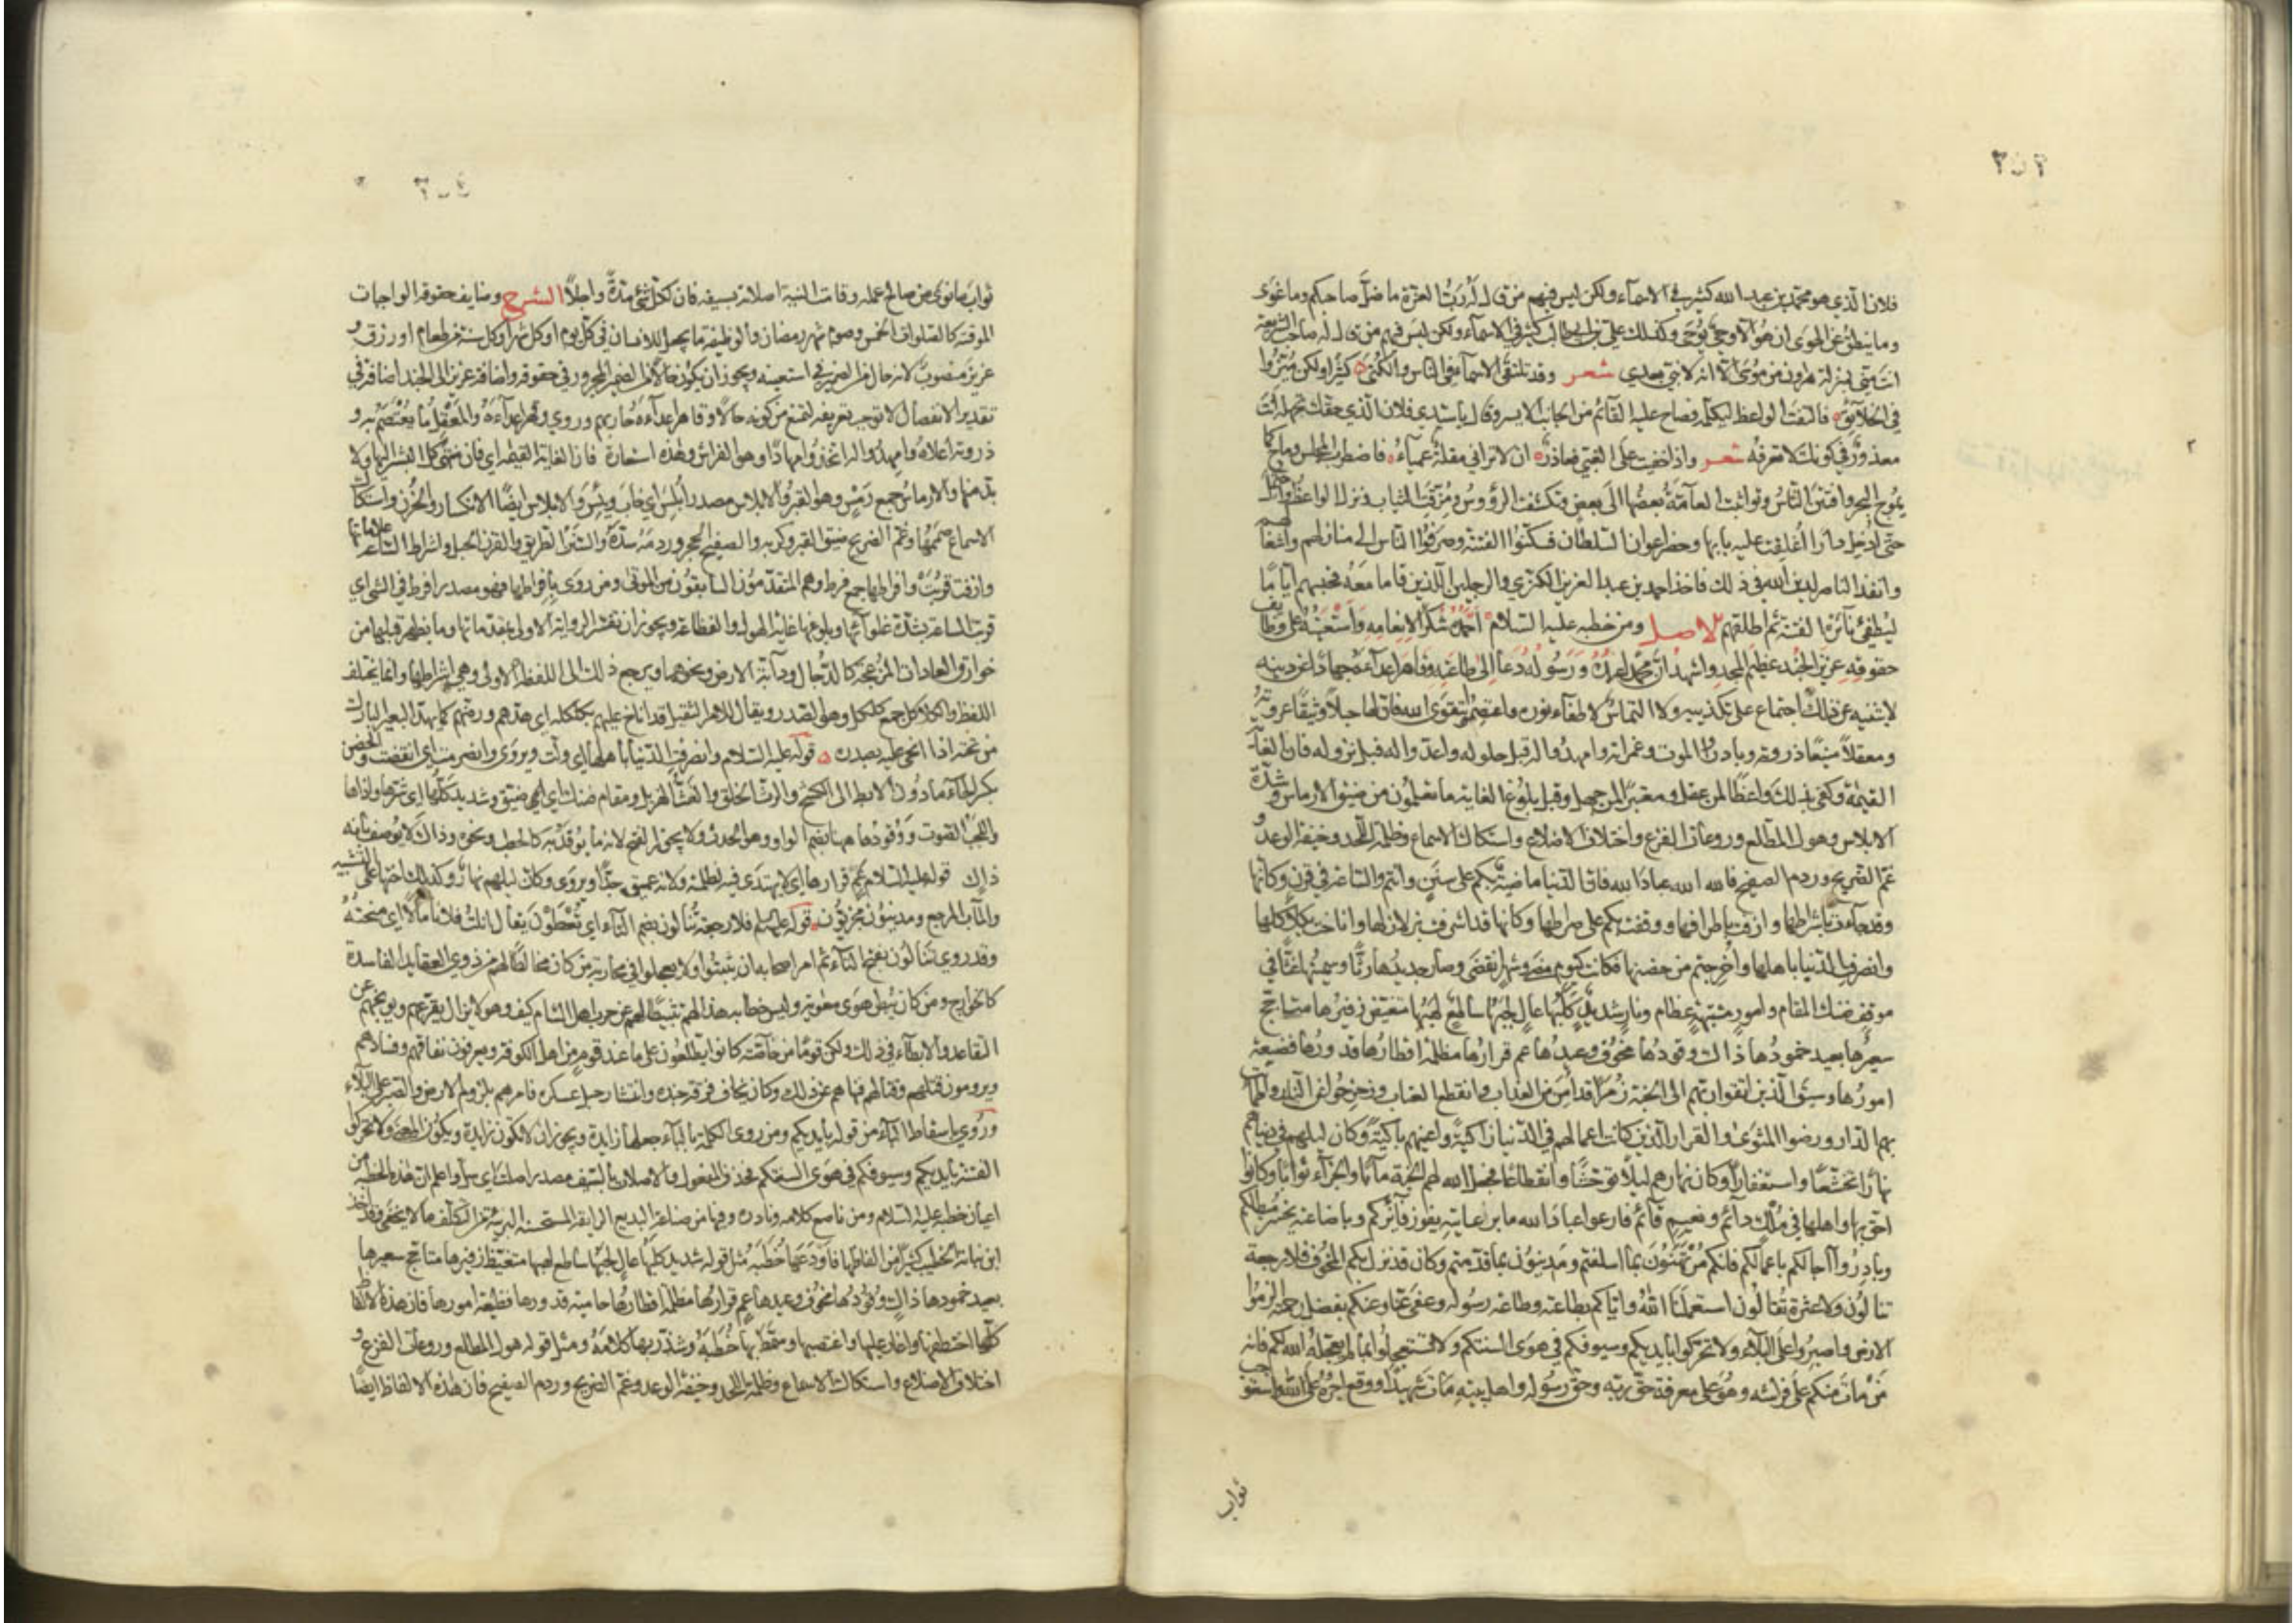 ٢٥٣
فلان الذي هو محمد بن عبد الله كثير في الاسماء ولكن ليس فيهم من قال له رب العزة ما ضل صاحبكم وما غوى
وما ينطق عن الهوى ان هو الا وحي يوحى وكذلك علي بن ابي طالب كثير في الاسماء ولكن ليس فيهم من قال له صاحب الشريعة
انت مني بمنزلة هرون من موسى الا انه لا نبي بعدي شعر وقد تلتقي الاسماء في الناس والكنى كثيرا ولكن ميزوا
في الخلائق فالتفت الواعظ ليكلمه فصاح عليه القائم من الجانب الايسر وقال يا سيدي فلان الذي حقك تجهله انت
معذور في كونك لا تعرفه شعر واذا خفيت على الغبي فعاذر ان لا تراني مقلة عمياء فاضطرب المجلس وماج كما
يموج البحر وافتتن الناس وتواثبت العامة بعضها الى بعض وتكشفت الرؤوس ومزقت الثياب ونزل الواعظ واحتمل
حتى ادخل دارا اغلقت عليه بابها وحضر اعوان السلطان فسكنوا الفتنة وصرفوا الناس الى منازلهم واشغالهم
وانفذ الناصر لدين الله في ذلك فاخذ احمد بن عبد العزيز الكزي والرجلين الذين قاما معه فحبسهم اياما
ليطفئ نائرة الفتنة ثم اطلقهم الاصل ومن خطبه عليه السلام احمده شكرا لانعامه واستعينه على وظايف
حقوقه عزيز الجند عظيم المجد واشهد ان محمدا عبده ورسوله دعا الى طاعته وقاهر اعداءه جهادا عن دينه
لا يثنيه عن ذلك اجتماع على تكذيبه ولا التماس لاطفاء نوره واعتصموا بتقوى الله فان لها حبلا وثيقا عروته
ومعقلا منيعا ذروته وبادروا الموت وغمراته وامهدوا له قبل حلوله واعدوا له قبل نزوله فان الغاية
القيمة وكفى بذلك واعظا لمن عقل ومعتبرا لمن جهل وقبل بلوغ الغاية ما تعلمون من ضيق الارماس وشدة
الابلاس وهول المطلع وروعات الفزع واختلاف الاضلاع واستكاك الاسماع وظلمة اللحد وخيفة الوعد و
غم الضريح وردم الصفيح فالله الله عباد الله فان الدنيا ماضية بكم على سنن وانتم والساعة في قرن وكانها
وقد جاءت باشراطها وازفت بافراطها ووقفت بكم على صراطها وكانها قد اشرفت بزلازلها واناخت بكلاكلها
وانصرفت الدنيا باهلها واخرجتهم من حضنها فكانت كيوم مضى وشهر انقضى وصار جديدها رثا وسمينها غثا في
موقف ضنك المقام وامور مشتبهة عظام ونار شديد كلبها عال لجبها ساطع لهبها متغيظ زفيرها متاجج
سعيرها بعيد خمودها ذاك وقودها مخوف وعيدها عم قرارها مظلمة اقطارها قدورها فظيعة
امورها وسيق الذين اتقوا ربهم الى الجنة زمرا قد امن من العذاب وانقطع العتاب وزحزحوا عن النار واطمانت
بهم الدار ورضوا المثوى والقرار الذين كانت اعمالهم في الدنيا زاكية واعينهم باكية وكان ليلهم في دنياهم
نهارا تخشعا واستغفارا وكان نهارهم ليلا توحشا وانقطاعا فجعل الله لهم الجنة مآبا والجزاء ثوابا وكانوا
احق بها واهلها في ملك دائم ونعيم قائم فارعوا عباد الله ما برعايته يفوز فائزكم وباضاعته يخسر مبطلكم
وبادروا آجالكم باعمالكم فانكم مرتهنون بما اسلفتم ومدينون بما قدمتم وكان قد نزل بكم المخوف فلا رجعة
تنالون ولا عثرة تقالون استعملنا الله واياكم بطاعته وطاعة رسوله وعفى عنا وعنكم بفضل رحمته الزموا
الارض واصبروا على البلاء ولا تحركوا بايديكم وسيوفكم في هوى السنتكم ولا تستعجلوا بما لم يعجله الله لكم فانه
من مات منكم على فراشه وهو على معرفة حق ربه وحق رسوله واهل بيته مات شهيدا ووقع اجره على الله واستوجب
ثواب
٢٥٤
ثواب ما نوى من صالح عمله وقامت النية اصلاته بسيفه فان لكل شئ مدة واجلا الشرح وضايف حقوقه الواجبات
الموقتة كالصلوات الخمس وصوم شهر رمضان والوظيفة ما يجعل للانسان في كل يوم او كل شهر او كل سنة من طعام او رزق و
عزيز منصوب لانه حال من الضمير في استعينه ويجوز ان يكون حالا من الضمير المجرور في حقوقه واضافة عزيز الى الجند اضافة في
تقدير الانفصال لا توجب تعريفه لتمنع من كونه حالا وقاهر اعداءه حاربهم وروي وقهر اعداءه والمعقل ما يعتصم به و
ذروته اعلاه وامهدوا له اتخذوا مهادا وهو الفراش وهذه استعارة فان الغاية القيمة اي فان منتهى كل البشر اليها ولا
بد منها والارماس جمع رمس وهو القبر والابلاس مصدر ابلس اي خاب ويئس والابلاس ايضا الانكسار والحزن واستكاك
الاسماع صممها وغم الضريح ضيق القبر وكربه والصفيح الحجر وردمه سده والسنن الطريق والقرن الحبل واشراط الساعة علاماتها
وازفت قربت وافراطها جمع فرط وهم المتقدمون السابقون من الموتى ومن روى بافراطها فهو مصدر افرط في الشئ اي
قربت الساعة بشدة غلوائها وبلوغها غاية الهول والفظاعة ويجوز ان تفسر الرواية الاولى بمقدماتها وما يظهر قبلها من
خوارق العادات المزعجة كالدجال ودابة الارض ونحوهما ويرجع ذلك الى اللفظة الاولى وهي اشراطها وانما يختلف
اللفظ والكلاكل جمع كلكل وهو الصدر ويقال للامر الثقيل قد اناخ عليهم بكلكله اي هدهم ورضهم كما يهد البعير البارك
من تحته اذا انحى عليه بصدره قوله عليه السلام وانصرفت الدنيا باهلها اي ولت ويروى وانصرمت اي انقضت والحضن
بكسر الحاء ما دون الابط الى الكشح والرث الخلق والغث الهزيل ومقام ضنك اي ضيق وشديد كلبها اي شرها واذاها
واللجب الصوت ووقودها ههنا بضم الواو وهو الحدث ولا يجوز الفتح لانه ما يوقد به كالحطب ونحوه وذاك لا يوصف بانه
ذاك قوله عليه السلام عم قرارها اي لا يهتدى فيه لظلمته ولانه عميق جدا ويروى وكان ليلهم نهار وكذلك اختها على التشبيه
والمآب المرجع ومدينون مجزيون قوله عليه السلام فلا رجعة تنالون بضم التاء اي تعطون يقال انلت فلانا مالا اي منحته
وقد روي تنالون بفتح التاء ثم امر اصحابه ان يثبتوا ولا يعجلوا في محاربة من كان مخالطا لهم من ذوي العقايد الفاسدة
كالخوارج ومن كان يبطن هوى معوية وليس خطابه هذا لهم تثبيطا لهم عن حرب اهل الشام كيف وهو لا يزال يقرعهم ويوبخهم عن
التقاعد والابطاء في ذلك ولكن قوما من خاصته كانوا يطلعون على ما عند قوم من اهل الكوفة ويعرفون نفاقهم وفسادهم
ويرومون قتلهم وقتالهم فنهاهم عن ذلك وكان يخاف فرقة جنده وانتشار حبل عسكره فامرهم بلزوم الارض والصبر على البلاء
وروي باسقاط الباء من قوله بايديكم ومن روى الكلمة بالباء جعلها زايدة ويجوز ان لا تكون زايدة ويكون المعنى ولا تحركوا
الفتنة بايديكم وسيوفكم في هوى السنتكم فحذف المفعول والاصلات بالسيف مصدر اصلت اي سل واعلم ان هذه الخطبة من
اعيان خطبه عليه السلام ومن ناصع كلامه ونادره وفيها من صناعة البديع الرايقة المستحسنة البريئة من التكلف ما لا يخفى وقد اخذ
ابن نباتة الخطيب كثيرا من الفاظها فاودعها خطبه مثل قوله شديد كلبها عال لجبها ساطع لهبها متغيظ زفيرها متاجج سعيرها
بعيد خمودها ذاك وقودها مخوف وعيدها عم قرارها مظلمة اقطارها حامية قدورها فظيعة امورها فان هذه الالفاظ
كلها اختطفها واغار عليها واغتصبها وسمط بها خطبه وشذر بها كلامه ومثل قوله هول المطلع وروعات الفزع و
اختلاف الاضلاع واستكاك الاسماع وظلمة اللحد وخيفة الوعد وغم الضريح وردم الصفيح فان هذه الالفاظ ايضا